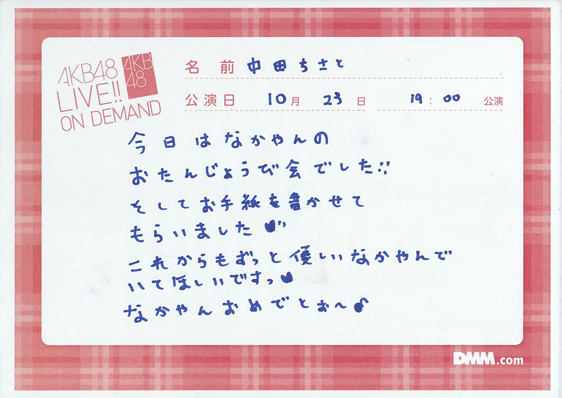 AKB48
LIVE!!
ON DEMAND
AKB
48
名前 中田ちさと
公演日 10月 23日 19:00 公演
今日はなかやんの
おたんじょうび会でした!!
そしてお手紙を書かせて
もらいました♥
これからもずっと優しいなかやんで
いてほしいですっ♥
なかやんおめでとぉ〜♪
DMM.com